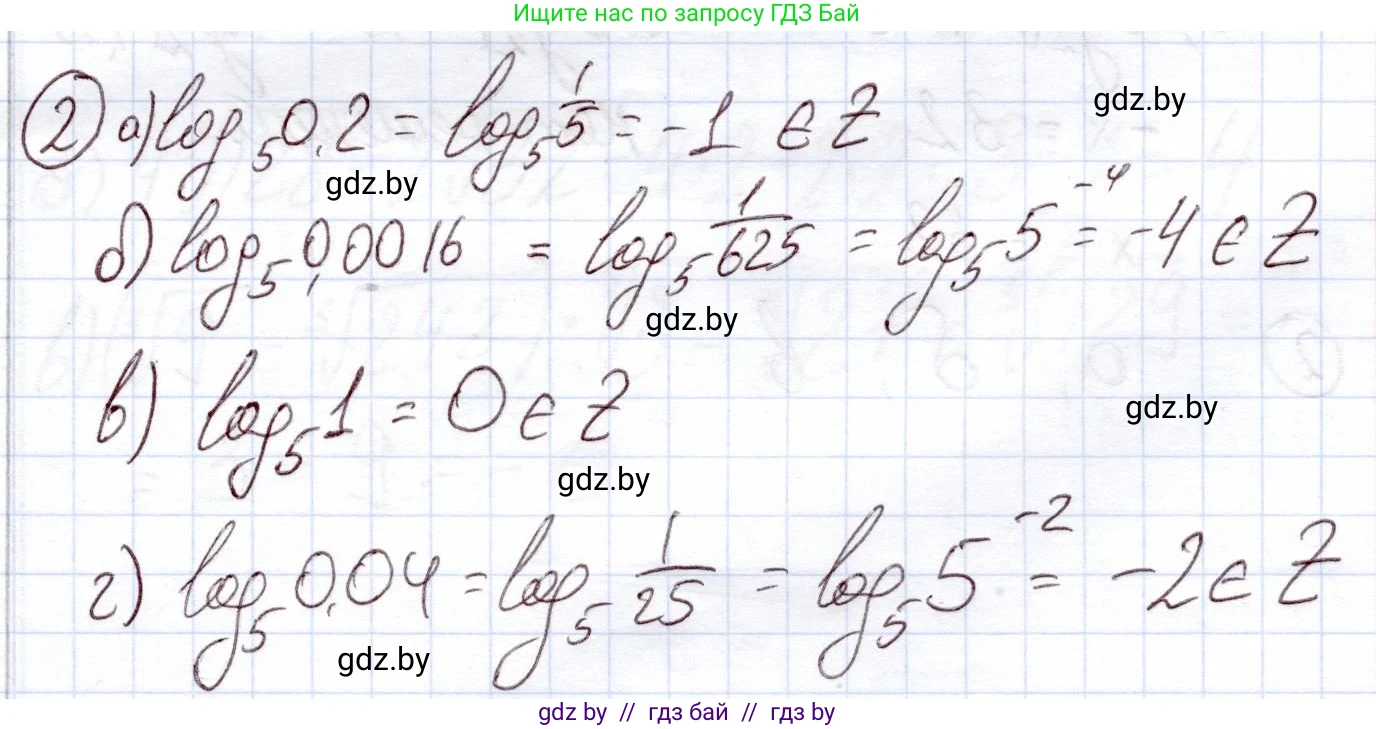 Ищите нас по запросу ГДЗ Бай
② а) log₅ 0,2 = log₅ 1/5 = -1 ∈ Z
gdz.by
gdz.by
б) log₅ 0,0016 = log₅ 1/625 = log₅ 5⁻⁴ = -4 ∈ Z
gdz.by
в) log₅ 1 = 0 ∈ Z
gdz.by
gdz.by
г) log₅ 0,04 = log₅ 1/25 = log₅ 5⁻² = -2 ∈ Z
gdz.by
gdz by // гдз бай // гдз by